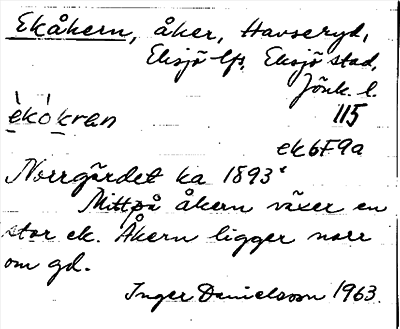 Ekåkern, åker, Havseryd,
Eksjö lfs, Eksjö stad,
Jönk. l.
ekokran 115
ek 6F9a
Norrgärdet ka 1893
Mittpå åkern växer en
stor ek. Åkern ligger norr
om gd.
Inger Danielsson 1963.